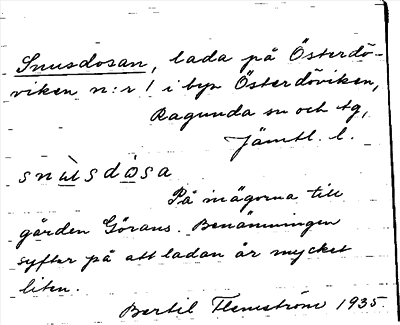 Snusdosan, lada på Österdö-
viken n:r 1 i byn Österdöviken,
Ragunda sn och tg,
Jämtl. l.
snùsdòsa
På inägorna till
gården Görans. Benämningen
syftar på att ladan är mycket
liten.
Bertil Flemström 1935